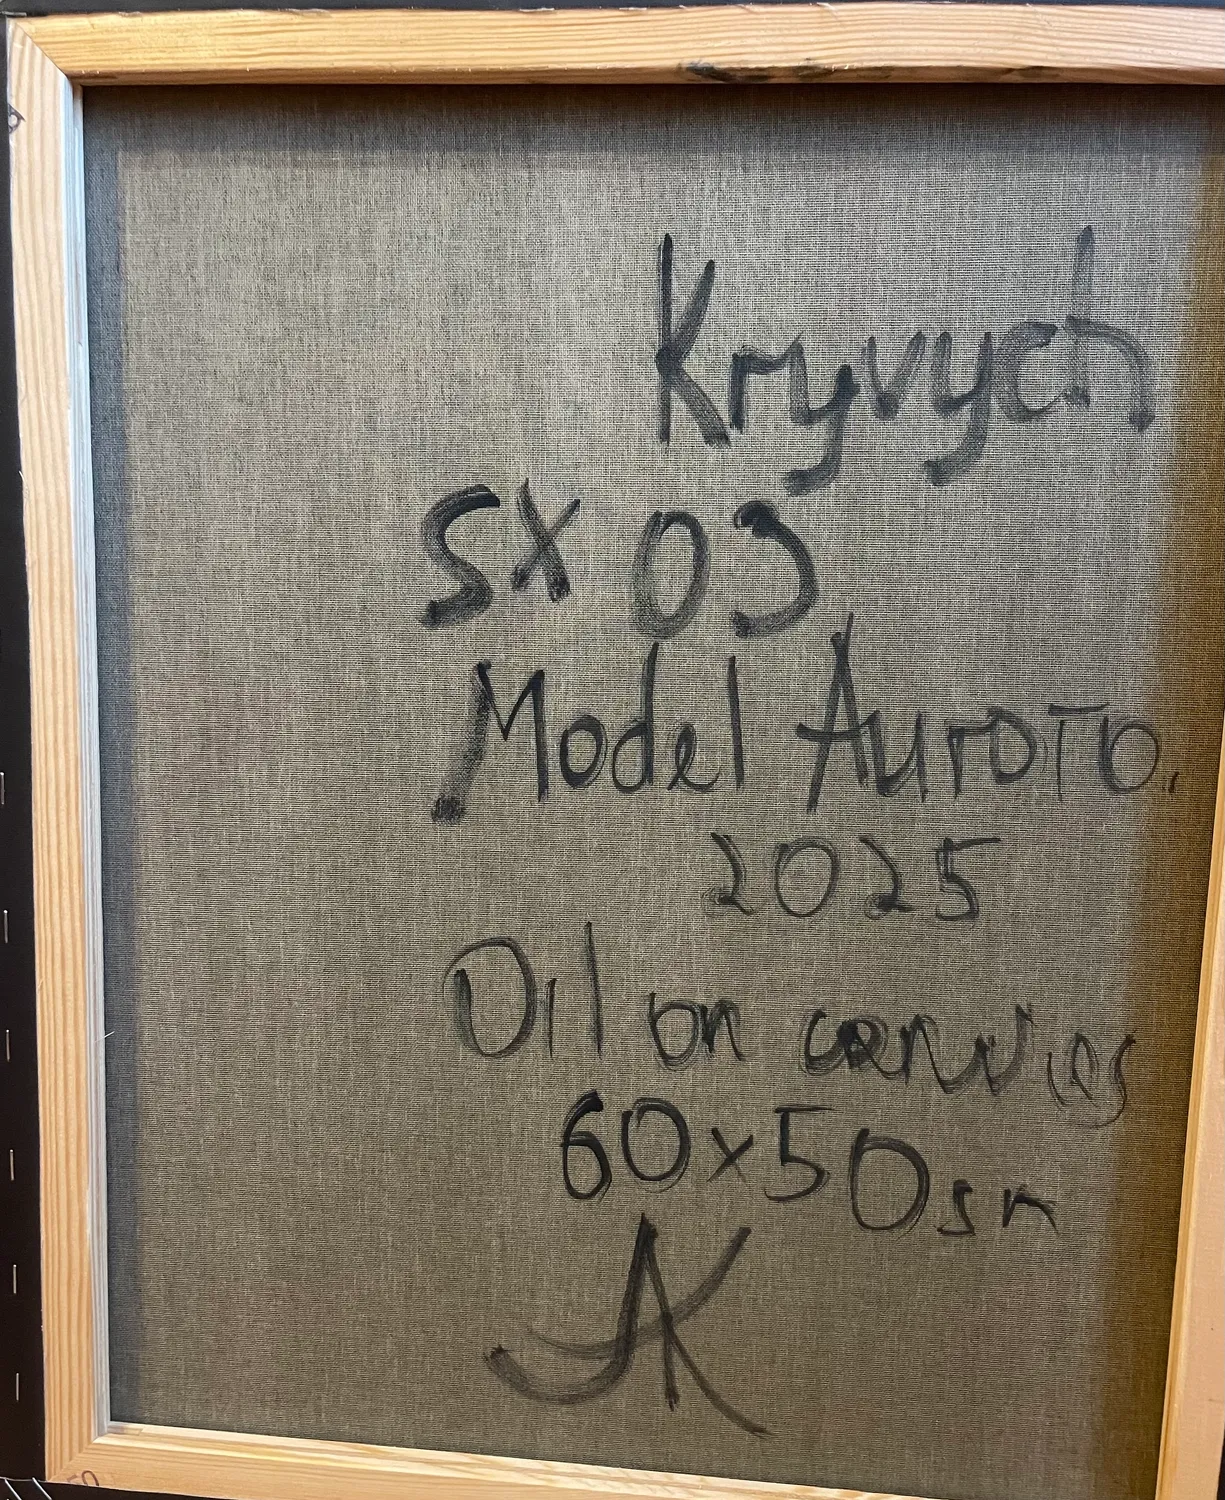 Kryvych
SX 03
Model Auroto.
2025
Oil on canvas
60x50sm
AK
50